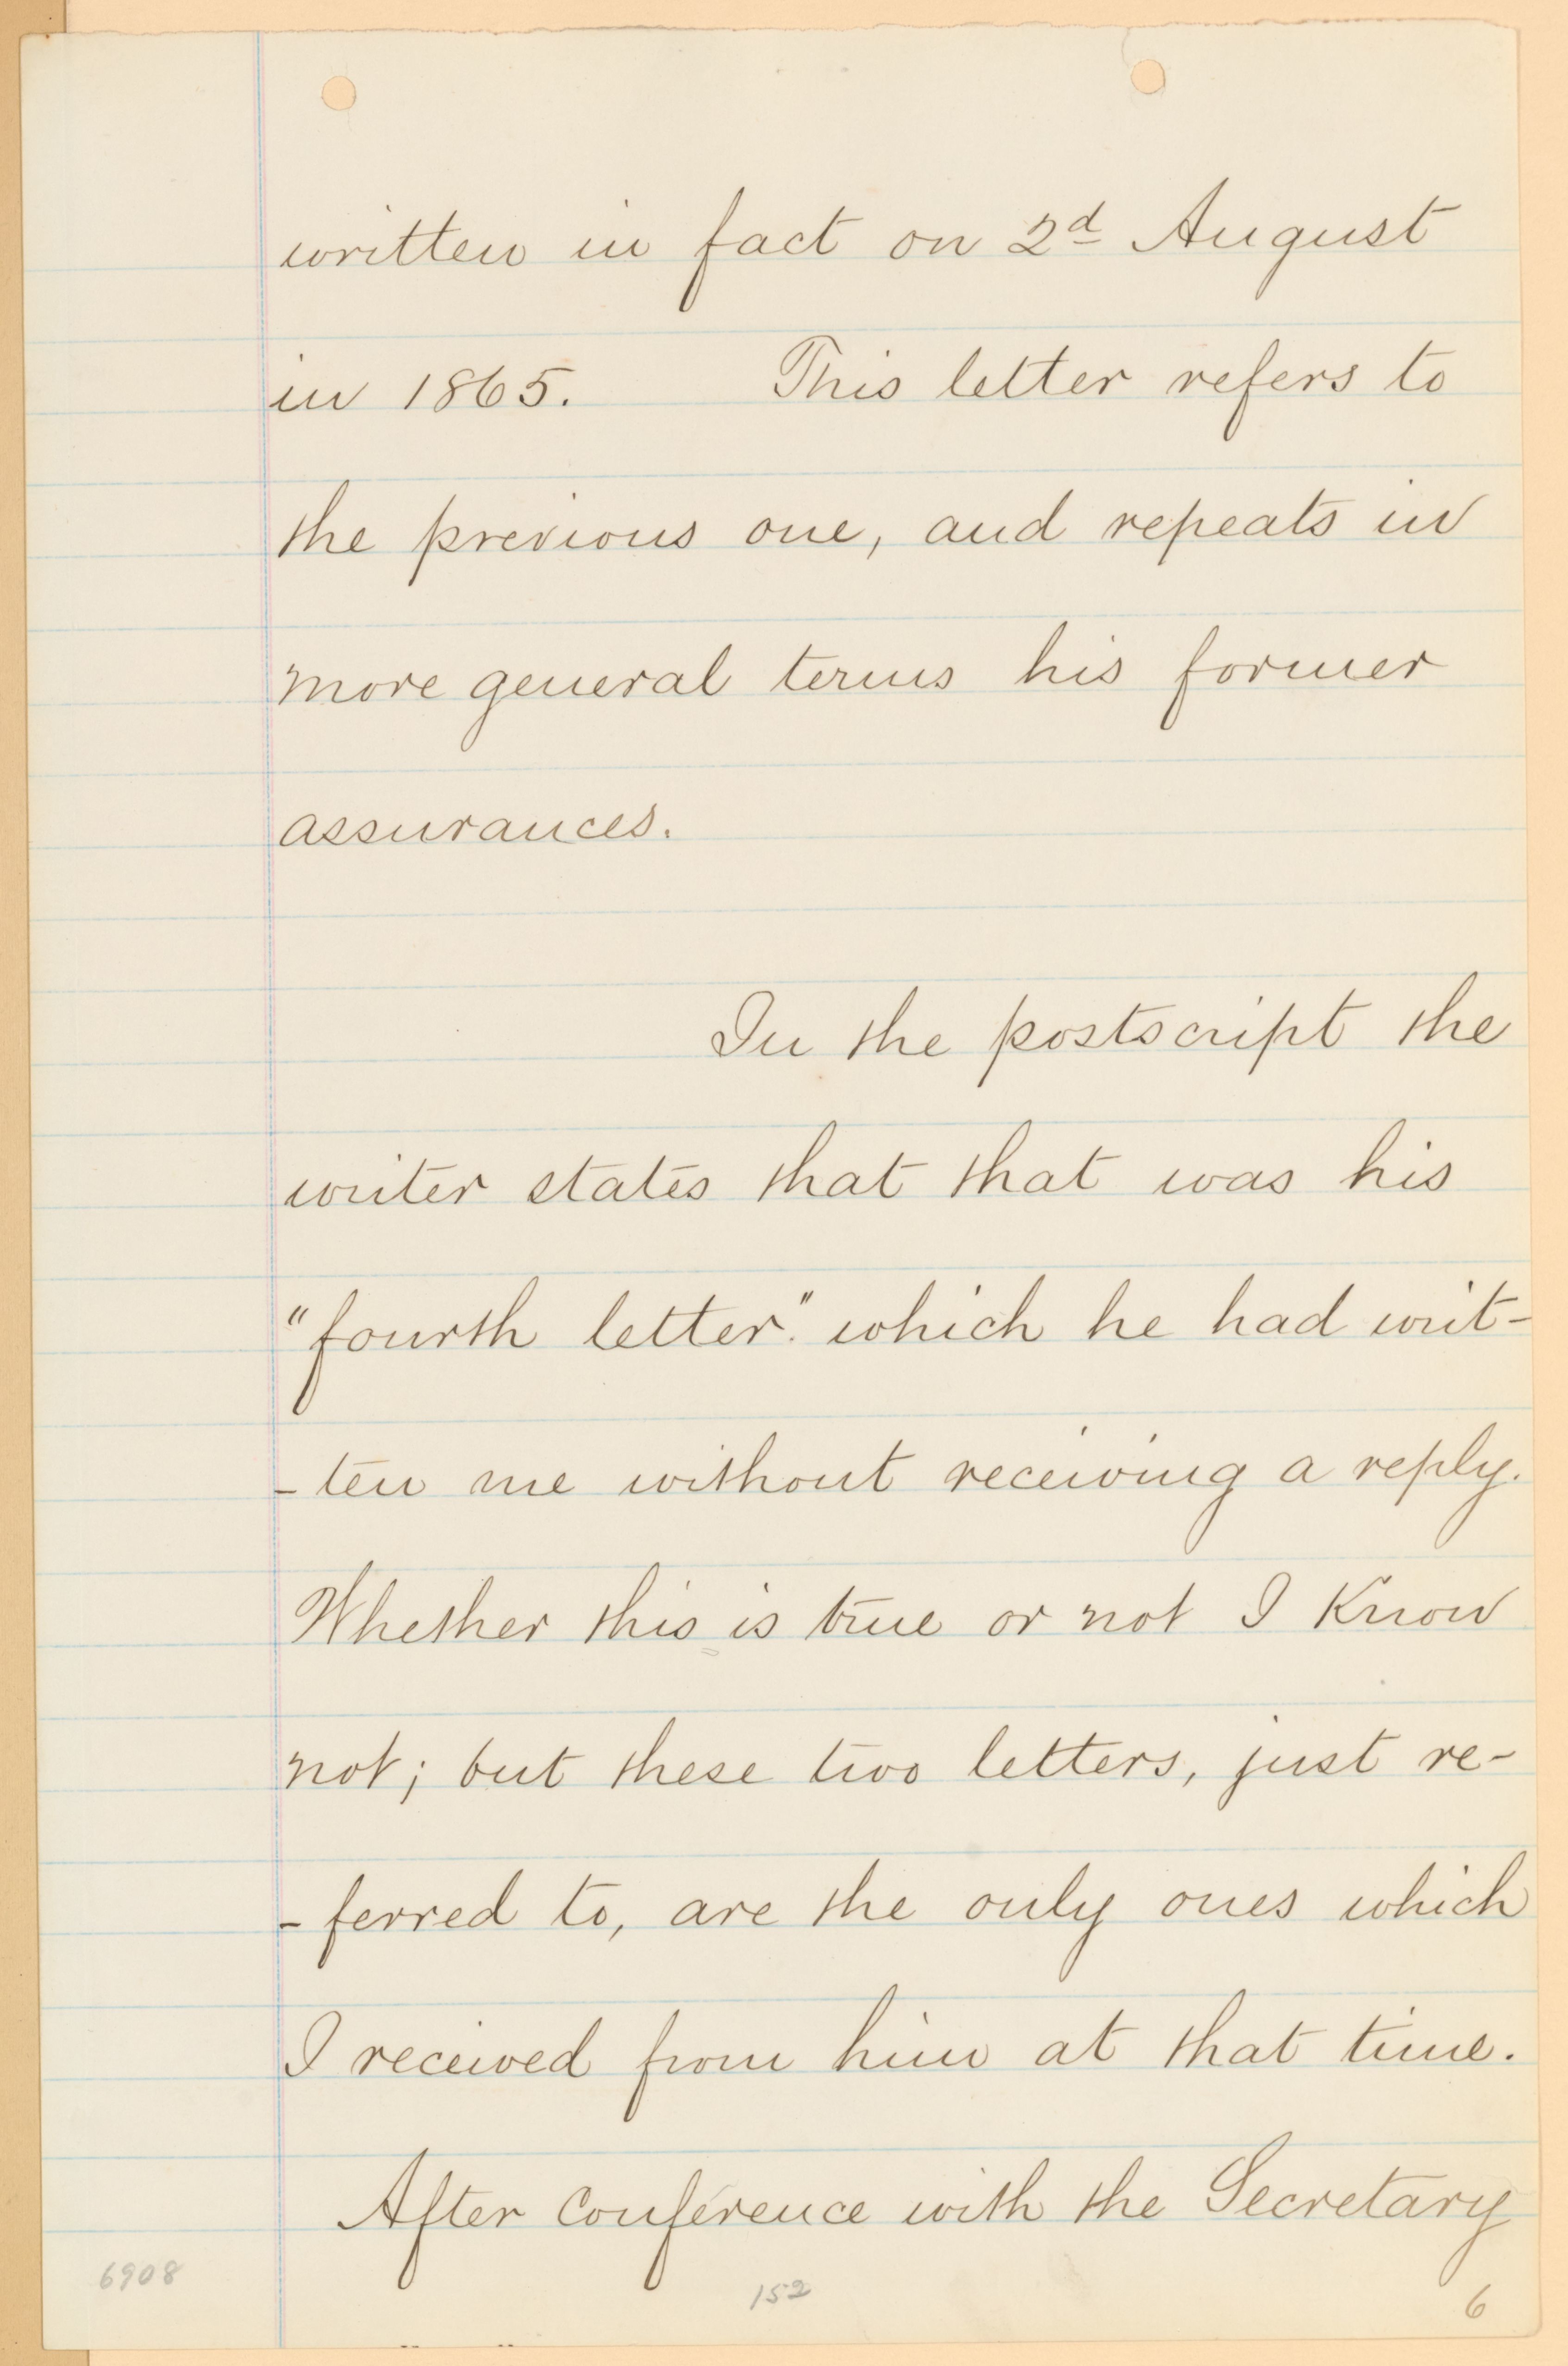 written in fact on 2d August
in 1865. This letter refers to
the previous one, and repeats in
more general terms his former
assurances.
In the postscript the
writer states that that was his
"fourth letter." which he had writ-
-ten me without receiving a reply.
Whether this is true or not I Know
not; but these two letters, just re-
-ferred to, are the only ones which
I received from him at that time.
After Conference with the Secretary
6908
152
6